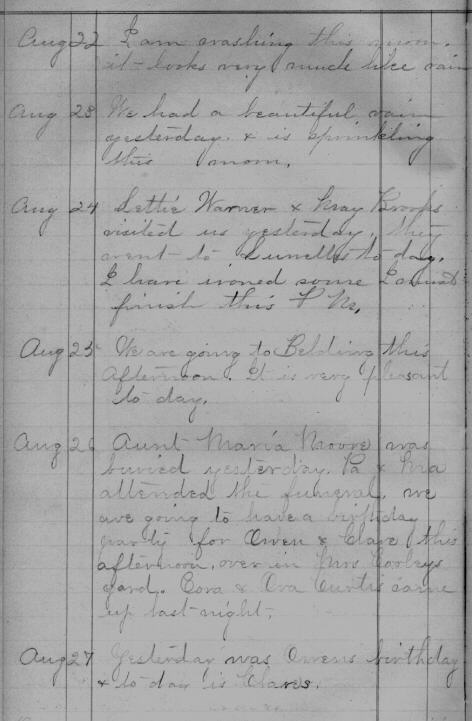 Aug 22 I am washing this morn.
it looks very much like rain
Aug 23 We had a beautiful rain
yesterday. & is sprinkling
this morn.
Aug 24 Lettie Warner & May
visited us yesterday, they
went to to day.
I have ironed some I must
finish this P M.
Aug 25 We are going to Belding this
afternoon. It is very pleasant
to day.
Aug 26 Aunt Maria Moore was
buried yesterday. Pa & Ma
attended the funeral. we
are going to have a birthday
party for Owen & Clare this
afternoon, over in Mrs Cooleys
yard. Cora & Ora Curtis came
up last night.
Aug 27 Yesterday was Owens birthday
& to day is Clares.